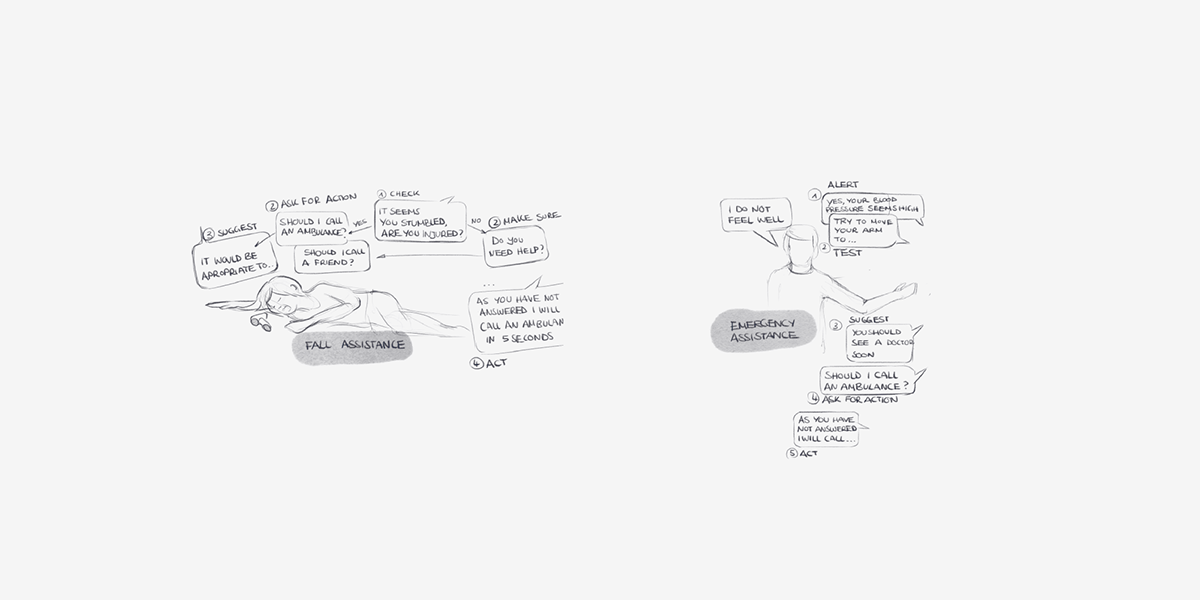 ① CHECK
IT SEEMS
YOU STUMBLED,
ARE YOU INJURED?
YES
② ASK FOR ACTION
SHOULD I CALL
AN AMBULANCE?
SHOULD I CALL
A FRIEND?
③ SUGGEST
IT WOULD BE
APROPRIATE TO...
NO
② MAKE SURE
DO YOU
NEED HELP?
...
AS YOU HAVE NOT
ANSWERED I WILL
CALL AN AMBULAN
IN 5 SECONDS
④ ACT
FALL ASSISTANCE
I DO NOT
FEEL WELL
ALERT
①
YES, YOUR BLOOD
PRESSURE SEEMS HIGH
TRY TO MOVE
YOUR ARM
TO...
② TEST
EMERGENCY
ASSISTANCE
③ SUGGEST
YOU SHOULD
SEE A DOCTOR
SOON
SHOULD I CALL
AN AMBULANCE?
④ ASK FOR ACTION
AS YOU HAVE
NOT ANSWERED
I WILL CALL...
⑤ ACT